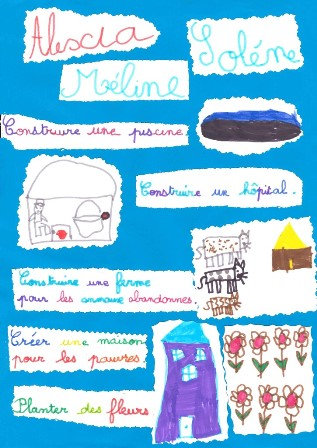 Alescia
Solène
Méline
Construire une piscine
Construire un hôpital.
Construire une ferme
pour les animaux abandonnés.
Créer une maison
pour les pauvres.
Planter des fleurs